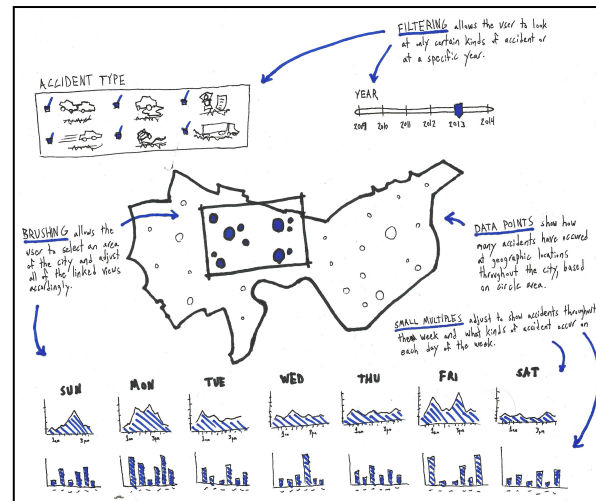 FILTERING allows the user to look
at only certain kinds of accident or
at a specific year.
ACCIDENT TYPE
YEAR
2009 2010 2011 2012 2013 2014
BRUSHING allows the
user to select an area
of the city and adjust
all of the linked views
accordingly.
DATA POINTS show how
many accidents have occured
at geographic locations
throughout the city, based
on circle area.
SMALL MULTIPLES adjust to show accidents throughout
the week and what kinds of accident occur on
each day of the week.
SUN MON TUE WED THU FRI SAT